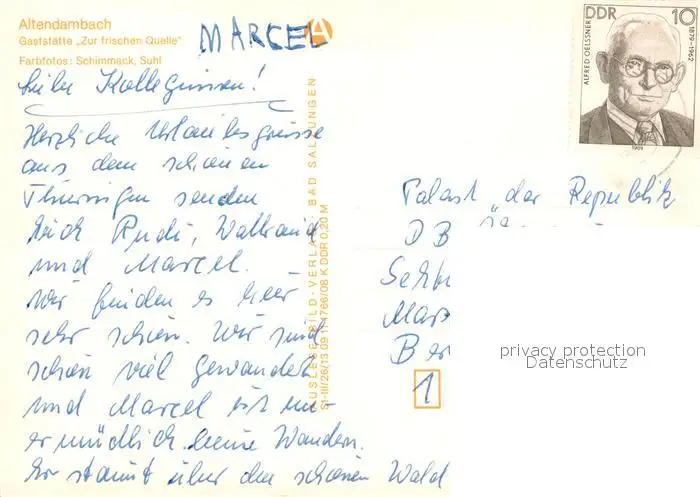 Altendambach
Gaststätte „Zur frischen Quelle"
Farbfotos: Schimmack, Suhl
MARCEL
A
DDR 10
ALFRED OELSSNER
1879-1962
1989
Liebe Kolleginnen!
Herzliche Urlaubsgrüsse
aus dem schönen
Thüringen senden
Euch Rudi, Waltraud
und Marcel.
Wir finden es hier
sehr schön. Wir sind
schon viel gewandert
und Marcel ist un-
ermüdlich beim Wandern.
Er staunt über den schönen Wald
AUSLESE-BILD-VERLAG BAD SALZUNGEN
S1-III/26/13 09 11 4766/08 K DDR 0,20 M
Palast der Republik
D B
Marx
Ber
1
privacy protection
Datenschutz